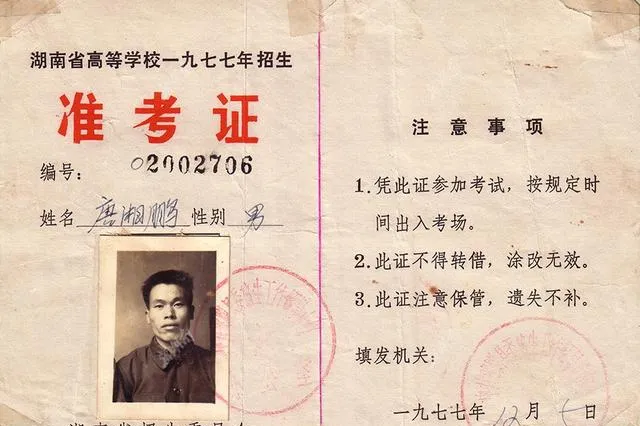 湖南省高等学校一九七七年招生
准考证
编号: 02002706
姓名 唐湘鹏 性别 男
注意事项
1.凭此证参加考试，按规定时
间出入考场。
2.此证不得转借，涂改无效。
3.此证注意保管，遗失不补。
填发机关:
一九七七年12月5日